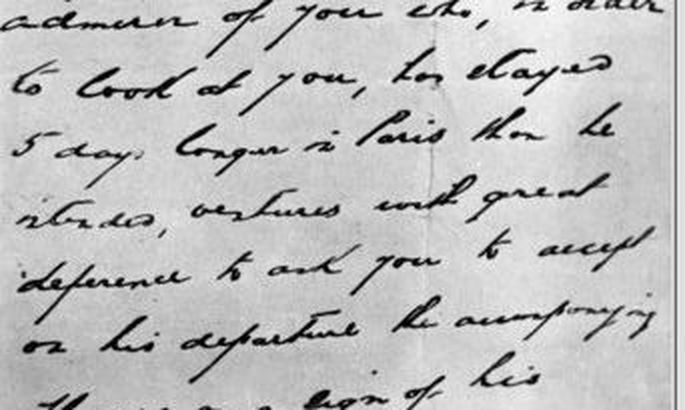 admirer of you who, in order
to look at you, has stayed
5 days longer in Paris than he
intended, ventures with great
deference to ask you to accept
on his departure the accompanying
sign of his